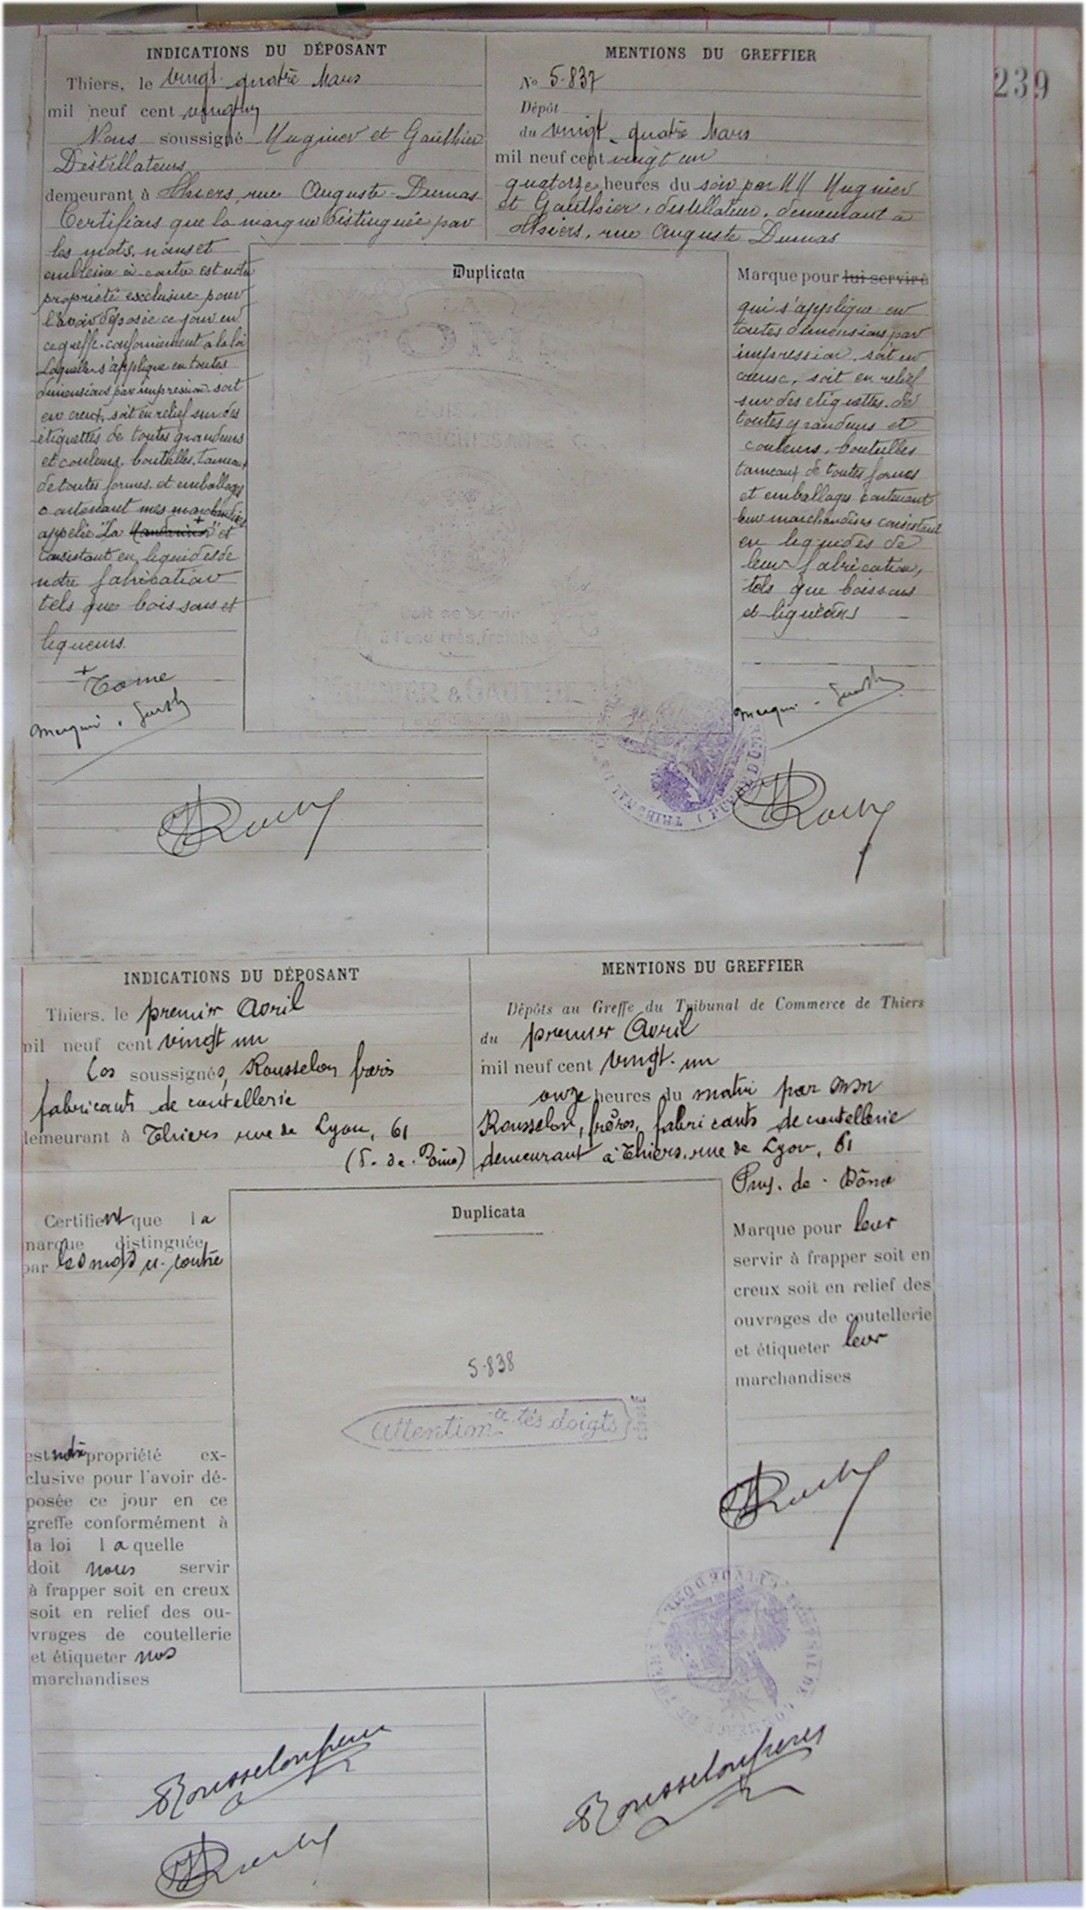 239
INDICATIONS DU DÉPOSANT
Thiers, le vingt quatre Mars
mil neuf cent vingt un
Nous soussigné Muguier et Gaulthier
Distillateurs
demeurant à Thiers, rue Auguste-Dumas
Certifions que la marque distinguée par
les mots, noms et
emblème ci-contre est notre
propriété exclusive pour
l'avoir déposée ce jour en
ce greffe conformément à la loi
Laquelle s'applique en toutes
dimensions par impression soit
en creux, soit en relief sur des
étiquettes de toutes grandeurs
et couleurs, bouteilles, tonneaux
de toutes formes et emballages
contenant mes marchandises
appelée "La" et
consistant en liquides de
notre fabrication
tels que boissons et
liqueurs.
MENTIONS DU GREFFIER
No 5.837
Dépôt
du vingt quatre Mars
mil neuf cent vingt un
quatorze heures du soir par MM Muguier
et Gaulthier, distillateur, demeurant à
Thiers, rue Auguste Dumas
Duplicata
Doit se servir
à l'eau très fraîche
Marque pour lui servir à
qui s'applique en
toutes dimensions par
impression, soit en
creux, soit en relief
sur des étiquettes, de
toutes grandeurs et
couleurs, bouteilles
tonneaux de toutes formes
et emballages contenant
leur marchandises consistant
en liquides de
leur fabrication,
tels que boissons
et liqueurs
INDICATIONS DU DÉPOSANT
Thiers, le premier Avril
mil neuf cent vingt un
Les soussignés, Rousselon frères
fabricants de coutellerie
demeurant à Thiers rue de Lyon, 61
(P. de. Dôme)
Certifient que la
marque distinguée
par les mots ci-contre
est notre propriété ex-
clusive pour l'avoir dé-
posée ce jour en ce
greffe conformément à
la loi laquelle
doit nous servir
à frapper soit en creux
soit en relief des ou-
vrages de coutellerie
et étiqueter nos
marchandises
MENTIONS DU GREFFIER
Dépôts au Greffe du Tribunal de Commerce de Thiers
du premier Avril
mil neuf cent vingt un
onze heures du matin par MM
Rousselon, frères, fabricants de coutellerie
demeurant à Thiers, rue de Lyon, 61
Puy. de. Dôme
Duplicata
5.838
Attention à tes doigts
Marque pour leur
servir à frapper soit en
creux soit en relief des
ouvrages de coutellerie
et étiqueter leur
marchandises
Rousselon frères
Rousselon frères